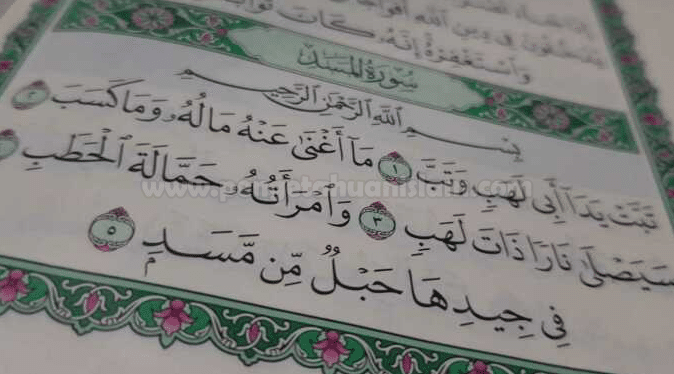 يَدْخُلُونَ فِى دِينِ ٱللَّهِ أَفْوَاجًا
وَٱسْتَغْفِرْهُ إِنَّهُۥ كَانَ تَوَّابًۢا
سُورَةُ المَسَدِ
بِسْمِ ٱللَّهِ ٱلرَّحْمَٰنِ ٱلرَّحِيمِ
تَبَّتْ يَدَآ أَبِى لَهَبٍ وَتَبَّ ١ مَآ أَغْنَىٰ عَنْهُ مَالُهُۥ وَمَا كَسَبَ ٢
سَيَصْلَىٰ نَارًا ذَاتَ لَهَبٍ ٣ وَٱمْرَأَتُهُۥ حَمَّالَةَ ٱلْحَطَبِ
فِى جِيدِهَا حَبْلٌ مِّن مَّسَدٍۭ ٥
www.pengetahuanislam.com